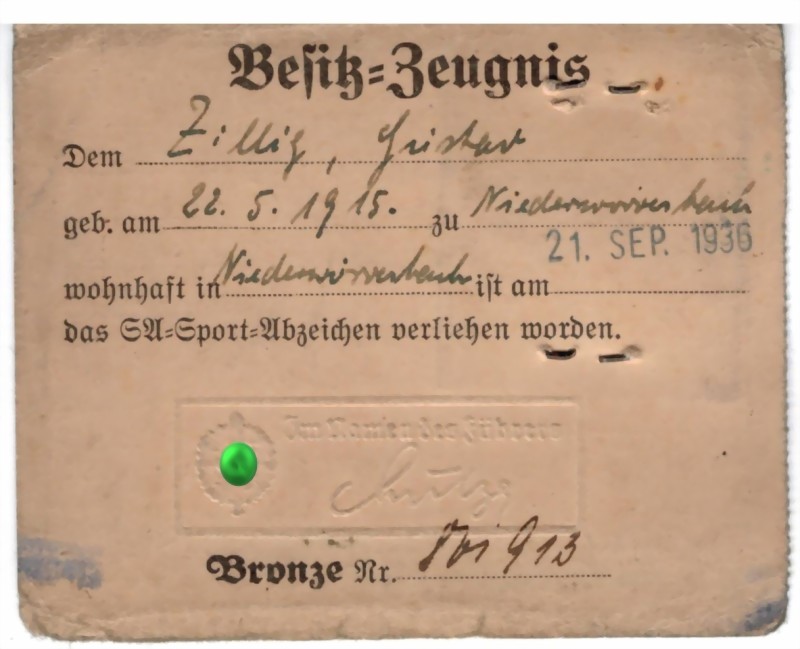 Besitz=Zeugnis
Dem Zillig, Gustav
geb. am 22. 5. 1915. zu Niederwörresbach
21. SEP. 1936
wohnhaft in Niederwörresbach ist am
das SA=Sport=Abzeichen verliehen worden.
Im Namen des Führers
Bronze Nr. 913